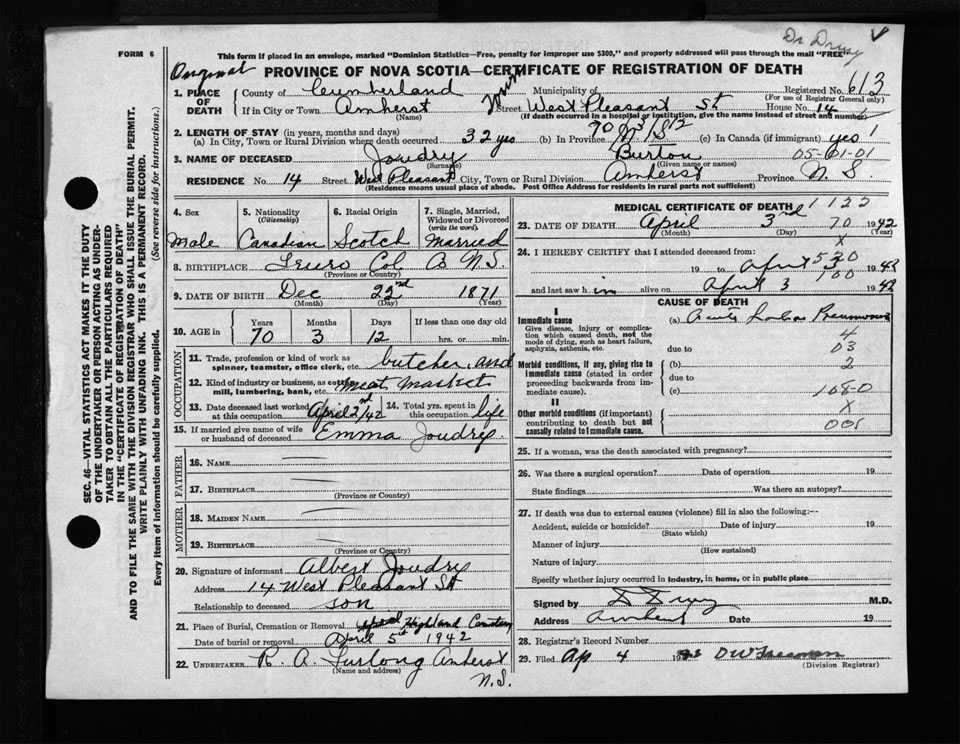 Dr Drury
FORM 6
This form if placed in an envelope, marked "Dominion Statistics—Free, penalty for improper use $300," and properly addressed will pass through the mail "FREE"
Original
PROVINCE OF NOVA SCOTIA—CERTIFICATE OF REGISTRATION OF DEATH
1. PLACE OF DEATH
County of Cumberland Municipality of Registered No. 613
(For use of Registrar General only)
If in City or Town Amherst Street West Pleasant St House No. 14
(Name) (If death occurred in a hospital or institution, give the name instead of street and number)
2. LENGTH OF STAY (in years, months and days)
(a) In City, Town or Rural Division where death occurred 32 yrs (b) In Province 70 (c) In Canada (if immigrant) yes 1
3. NAME OF DECEASED Joudry Burton 05-01-01
(Surname) (Given name or names)
RESIDENCE No. 14 Street West Pleasant City, Town or Rural Division Amherst Province N.S.
(Residence means usual place of abode. Post Office Address for residents in rural parts not sufficient)
4. Sex 5. Nationality (Citizenship) 6. Racial Origin 7. Single, Married, Widowed or Divorced (write the word)
Male Canadian Scotch Married
8. BIRTHPLACE Truro Col N S
(Province or Country)
9. DATE OF BIRTH Dec 22nd 1871
(Month) (Day) (Year)
10. AGE in Years Months Days If less than one day old
70 3 12 hrs. or min.
OCCUPATION
11. Trade, profession or kind of work as spinner, teamster, office clerk, etc. butcher and
12. Kind of industry or business, as cotton mill, lumbering, bank, etc. Meat Market
13. Date deceased last worked at this occupation April 2nd/42 14. Total yrs. spent in this occupation life
15. If married give name of wife or husband of deceased Emma Joudry
FATHER
16. NAME
17. BIRTHPLACE
(Province or Country)
MOTHER
18. MAIDEN NAME
19. BIRTHPLACE
(Province or Country)
20. Signature of informant Albert Joudry
Address 14 West Pleasant St
Relationship to deceased son
21. Place of Burial, Cremation or Removal Highland Cemetery
Date of burial or removal April 5th 1942
22. UNDERTAKER R. A. Furlong Amherst
(Name and address)
N.S.
MEDICAL CERTIFICATE OF DEATH 1123
23. DATE OF DEATH April 3rd 70 1942
(Month) (Day) (Year)
X
24. I HEREBY CERTIFY that I attended deceased from:
19 to April 3 1942
530
and last saw him alive on April 3 1942
100
CAUSE OF DEATH
I
Immediate cause
Give disease, injury or complication which caused death, not the mode of dying, such as heart failure, asphyxia, asthenia, etc.
(a) Acute Lobar Pneumonia
4
due to 03
Morbid conditions, if any, giving rise to immediate cause (stated in order proceeding backwards from immediate cause).
(b) 2
due to
(c) 108-0
II
Other morbid conditions (if important) contributing to death but not causally related to immediate cause.
X
001
25. If a woman, was the death associated with pregnancy?
26. Was there a surgical operation? Date of operation 19
State findings Was there an autopsy?
27. If death was due to external causes (violence) fill in also the following:—
Accident, suicide or homicide? Date of injury 19
(State which)
Manner of injury
(How sustained)
Nature of injury
Specify whether injury occurred in industry, in home, or in public place
Signed by M.D.
Address Amherst Date 19
28. Registrar's Record Number
29. Filed Ap 4 1942 D W Freeman
(Division Registrar)
SEC. 46—VITAL STATISTICS ACT MAKES IT THE DUTY
OF THE UNDERTAKER OR PERSON ACTING AS UNDERTAKER
TO OBTAIN ALL THE PARTICULARS REQUIRED
IN THE "CERTIFICATE OF REGISTRATION OF DEATH"
AND TO FILE THE SAME WITH THE DIVISION REGISTRAR WHO SHALL ISSUE THE BURIAL PERMIT.
WRITE PLAINLY WITH UNFADING INK. THIS IS A PERMANENT RECORD.
Every item of information should be carefully supplied. (See reverse side for instructions.)